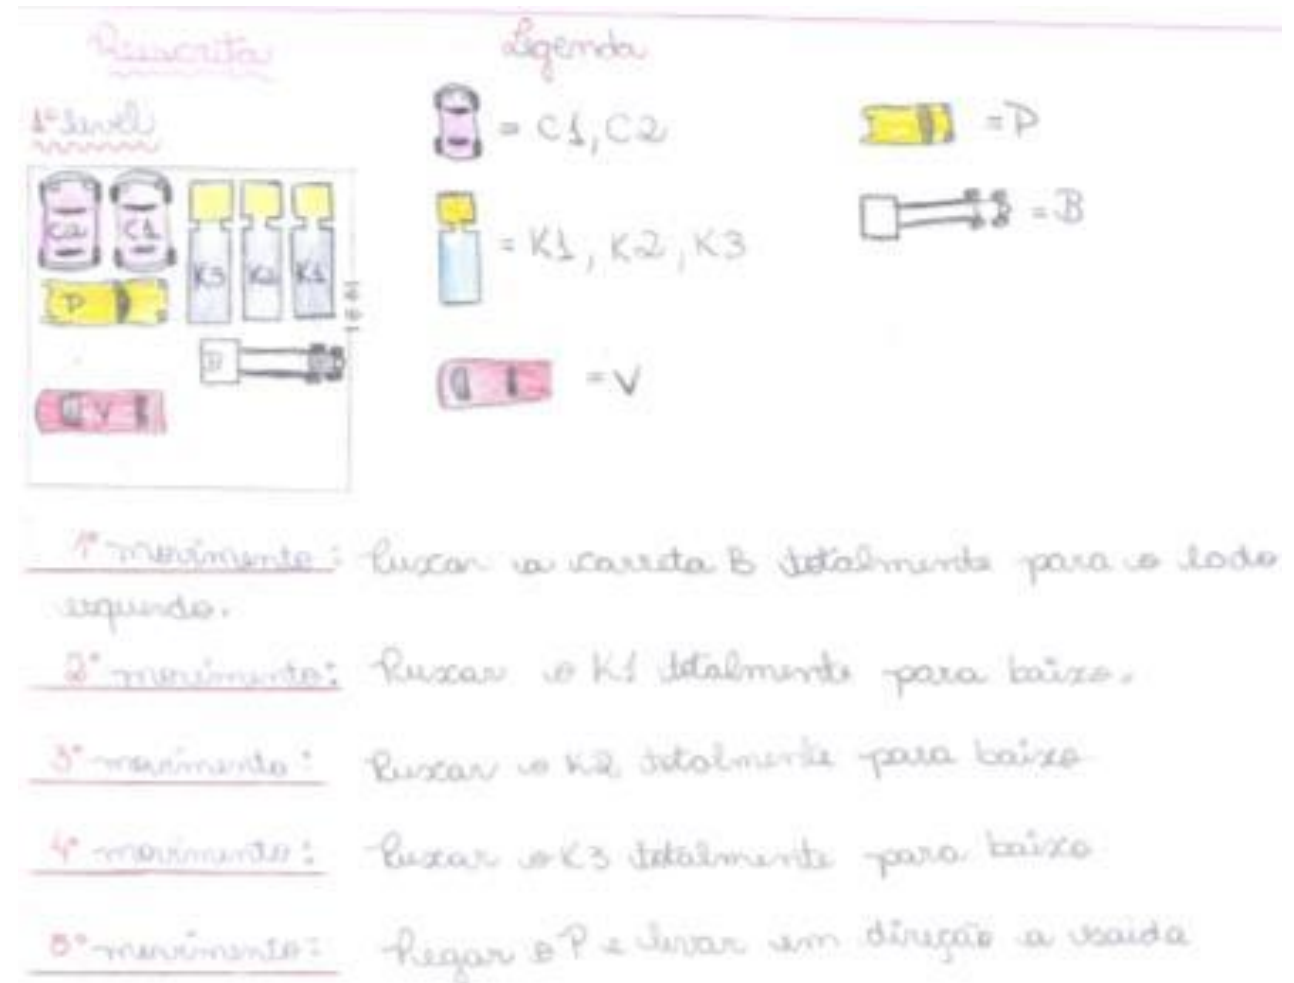 Reescrita
Legenda
1º level
= C1, C2
= P
C2 C1
K3 K2 K1
= K1, K2, K3
= B
P
B
V
= V
1º movimento: Puxar a carreta B totalmente para o lado
esquerdo.
2º movimento: Puxar o K1 totalmente para baixo.
3º movimento: Puxar o K2 totalmente para baixo
4º movimento: Puxar o K3 totalmente para baixo
5º movimento: Pegar o P e levar em direção a saida